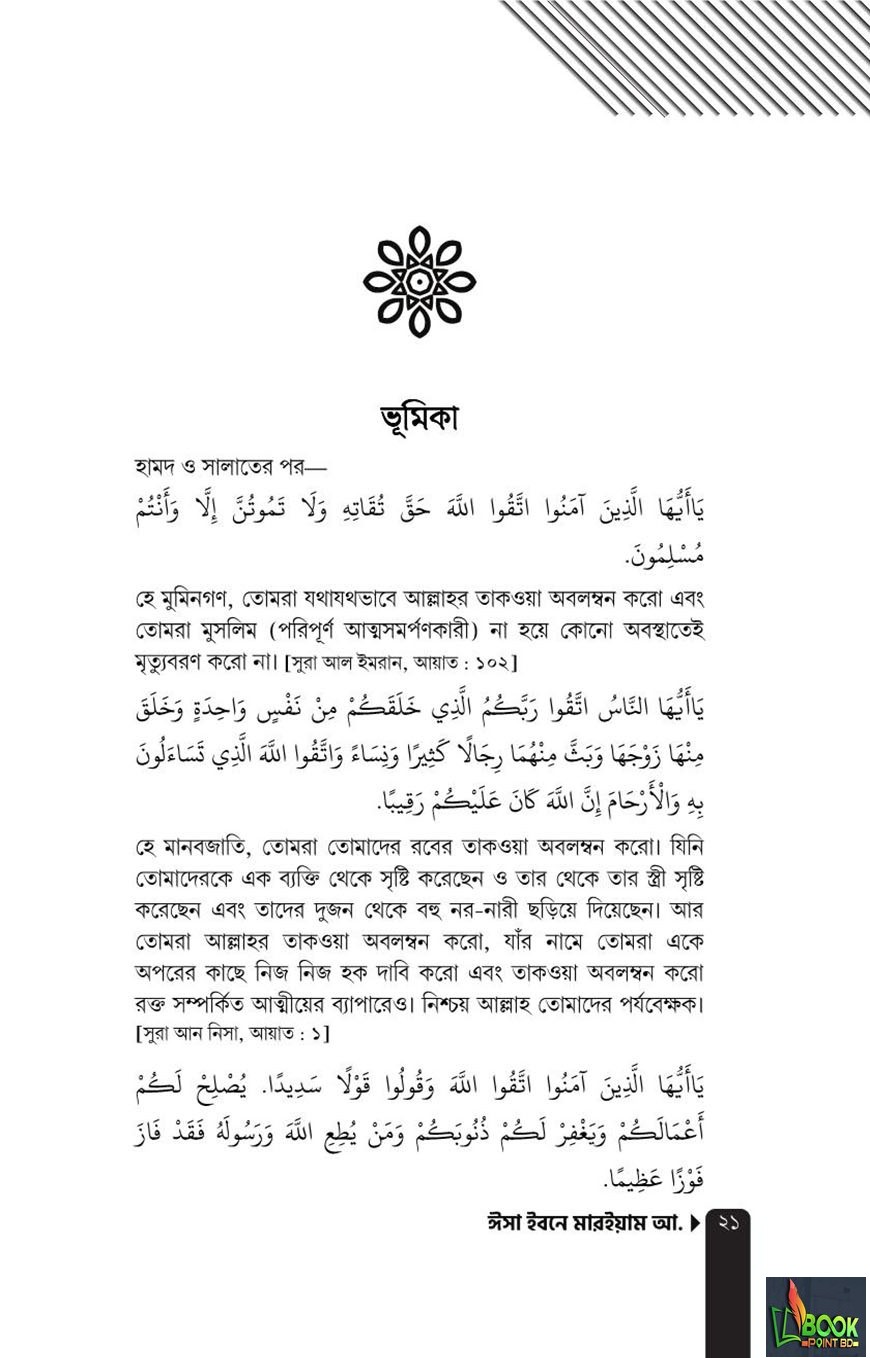 ভূমিকা
হামদ ও সালাতের পর—
يَاأَيُّهَا الَّذِينَ آمَنُوا اتَّقُوا اللَّهَ حَقَّ تُقَاتِهِ وَلَا تَمُوتُنَّ إِلَّا وَأَنْتُمْ
مُسْلِمُونَ.
হে মুমিনগণ, তোমরা যথাযথভাবে আল্লাহর তাকওয়া অবলম্বন করো এবং
তোমরা মুসলিম (পরিপূর্ণ আত্মসমর্পণকারী) না হয়ে কোনো অবস্থাতেই
মৃত্যুবরণ করো না। [সুরা আল ইমরান, আয়াত : ১০২]
يَاأَيُّهَا النَّاسُ اتَّقُوا رَبَّكُمُ الَّذِي خَلَقَكُمْ مِنْ نَفْسٍ وَاحِدَةٍ وَخَلَقَ
مِنْهَا زَوْجَهَا وَبَثَّ مِنْهُمَا رِجَالًا كَثِيرًا وَنِسَاءً وَاتَّقُوا اللَّهَ الَّذِي تَسَاءَلُونَ
بِهِ وَالْأَرْحَامَ إِنَّ اللَّهَ كَانَ عَلَيْكُمْ رَقِيبًا.
হে মানবজাতি, তোমরা তোমাদের রবের তাকওয়া অবলম্বন করো। যিনি
তোমাদেরকে এক ব্যক্তি থেকে সৃষ্টি করেছেন ও তার থেকে তার স্ত্রী সৃষ্টি
করেছেন এবং তাদের দুজন থেকে বহু নর-নারী ছড়িয়ে দিয়েছেন। আর
তোমরা আল্লাহর তাকওয়া অবলম্বন করো, যাঁর নামে তোমরা একে
অপরের কাছে নিজ নিজ হক দাবি করো এবং তাকওয়া অবলম্বন করো
রক্ত সম্পর্কিত আত্মীয়ের ব্যাপারেও। নিশ্চয় আল্লাহ তোমাদের পর্যবেক্ষক।
[সুরা আন নিসা, আয়াত : ১]
يَاأَيُّهَا الَّذِينَ آمَنُوا اتَّقُوا اللَّهَ وَقُولُوا قَوْلًا سَدِيدًا. يُصْلِحْ لَكُمْ
أَعْمَالَكُمْ وَيَغْفِرْ لَكُمْ ذُنُوبَكُمْ وَمَنْ يُطِعِ اللَّهَ وَرَسُولَهُ فَقَدْ فَازَ
فَوْزًا عَظِيمًا.
ঈসা ইবনে মারইয়াম আ. ২১
BOOK
POINT BD